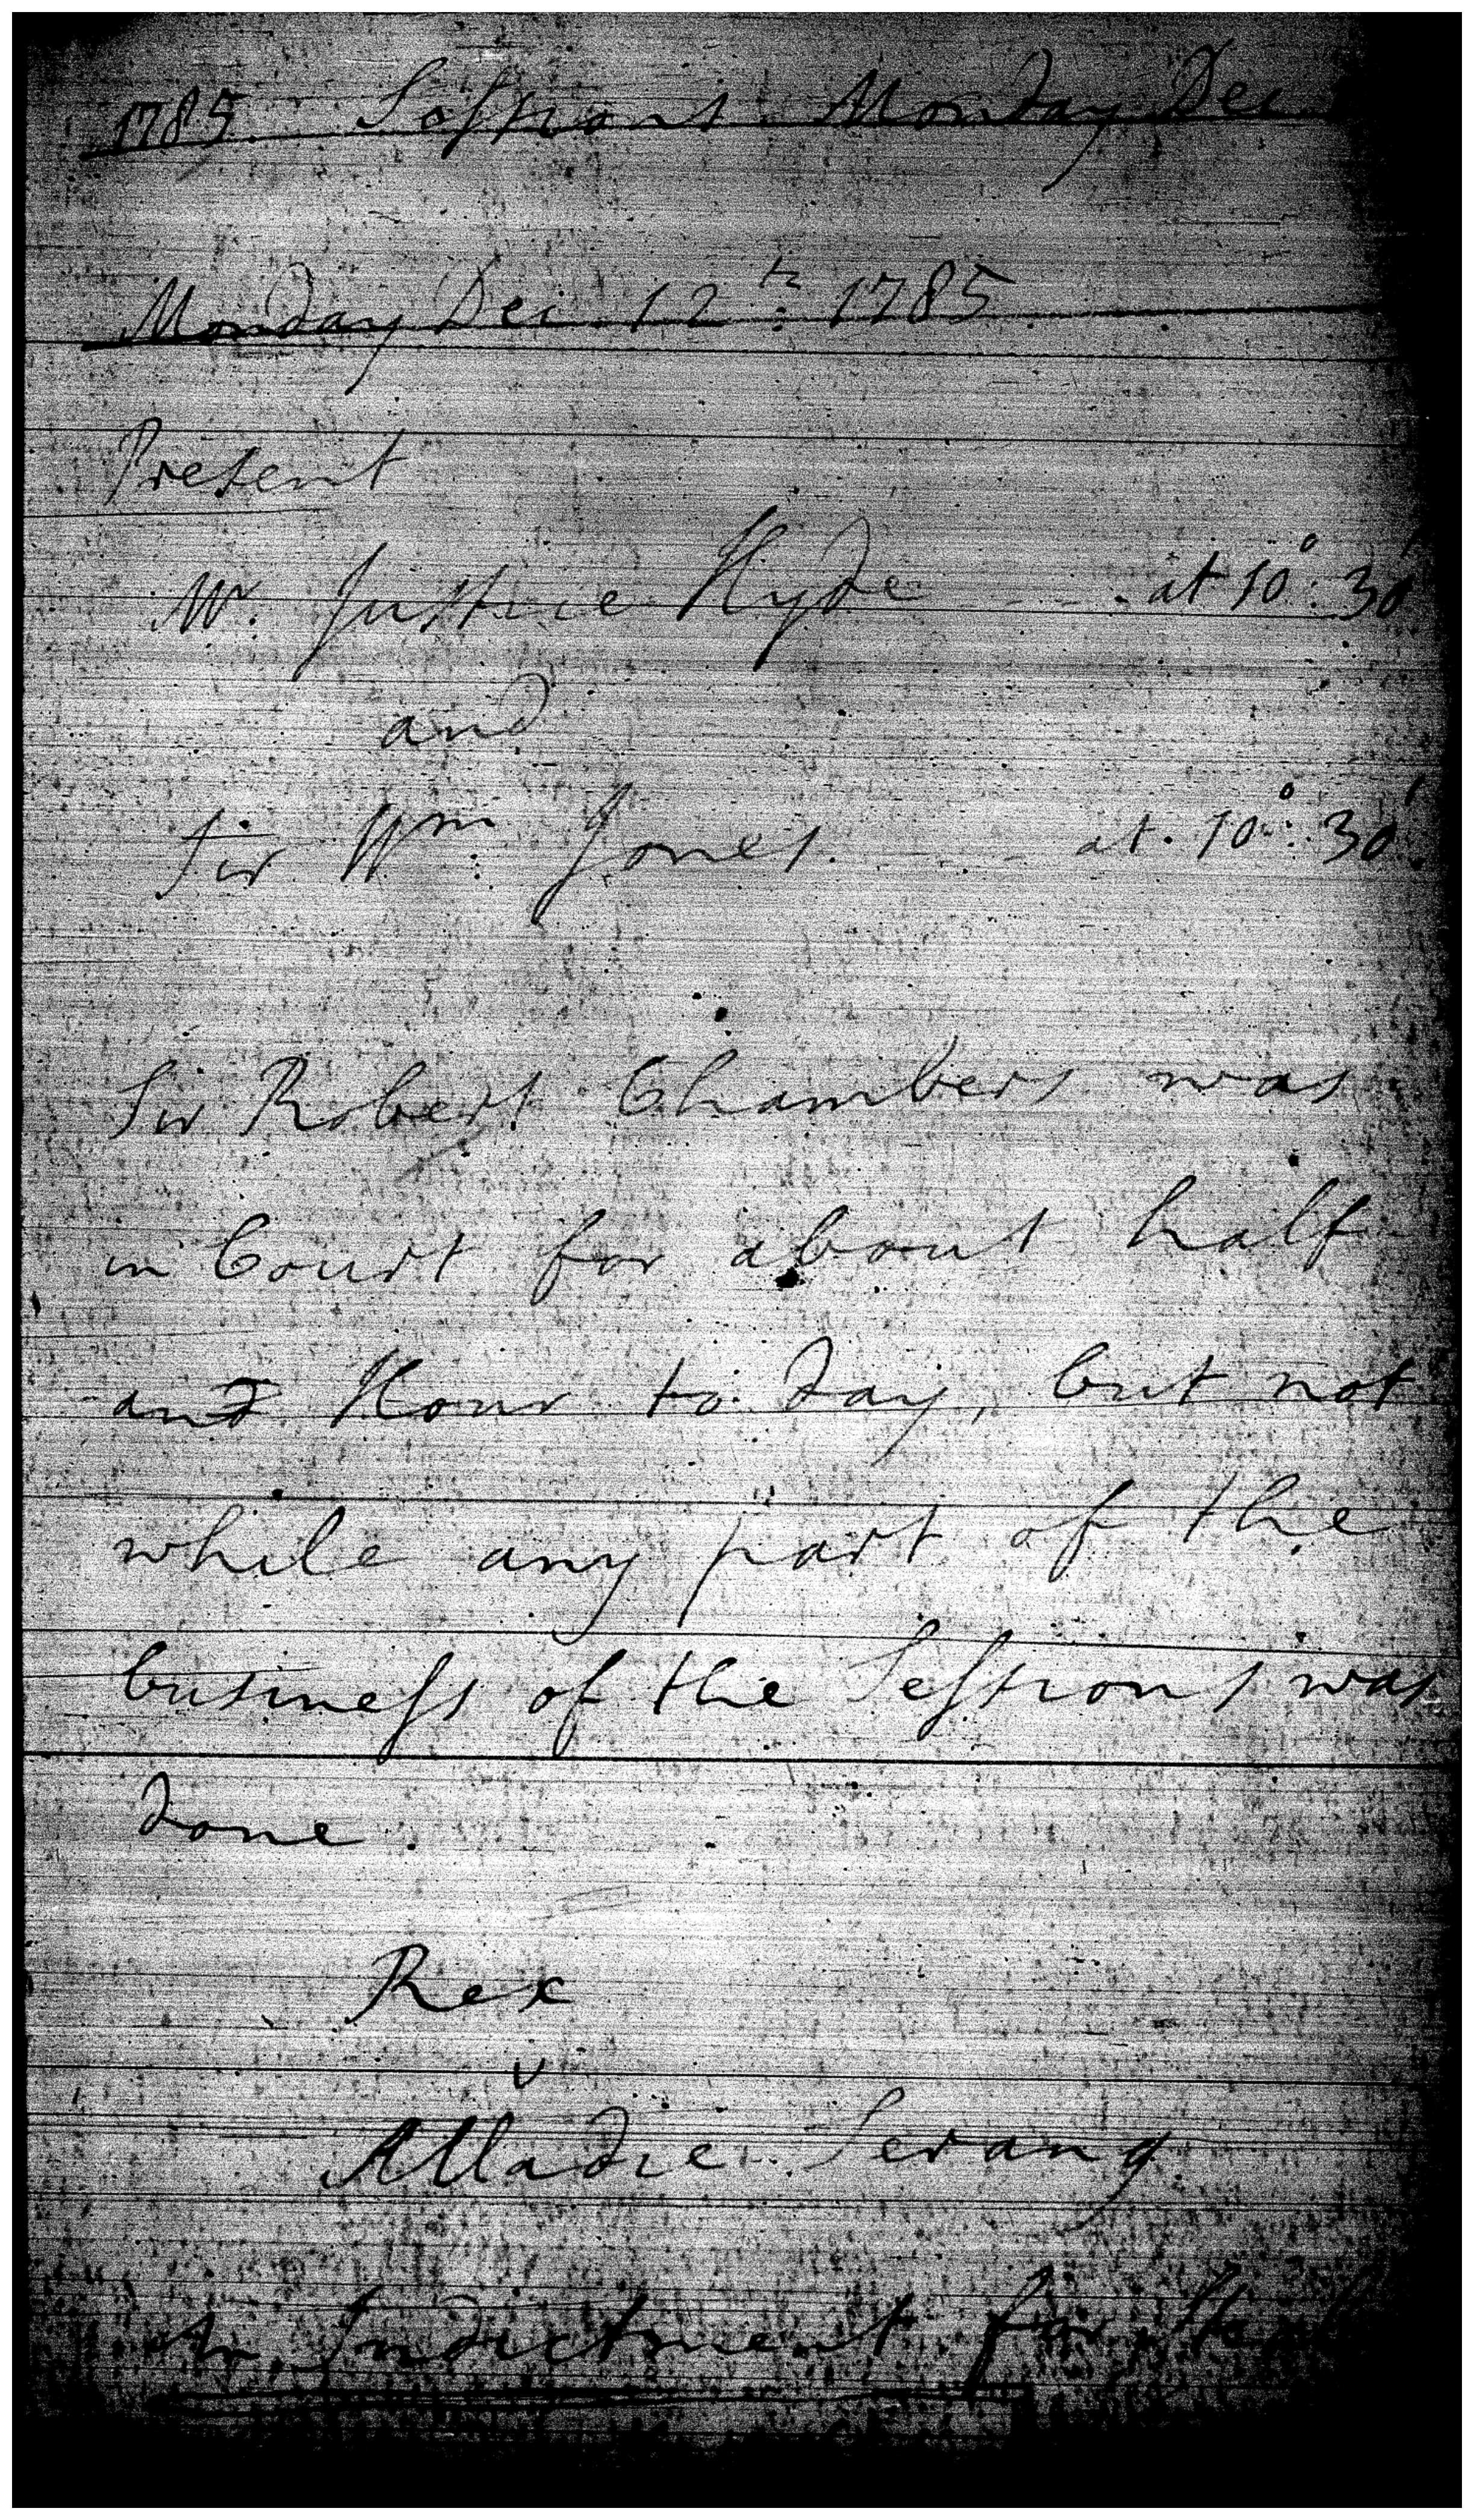 1785. Sessions. Monday Dec.
Monday Dec. 12th. 1785.
Present
Mr. Justice Hyde at 10°: 30'
and
Sir Wm. Jones. at. 10°: 30'.
Sir Robert Chambers was
in Court for about half
and Hour to day, but not
while any part of the
business of the Sessions was
done.
Rex
v
Alladie Serang.
An Indictment for